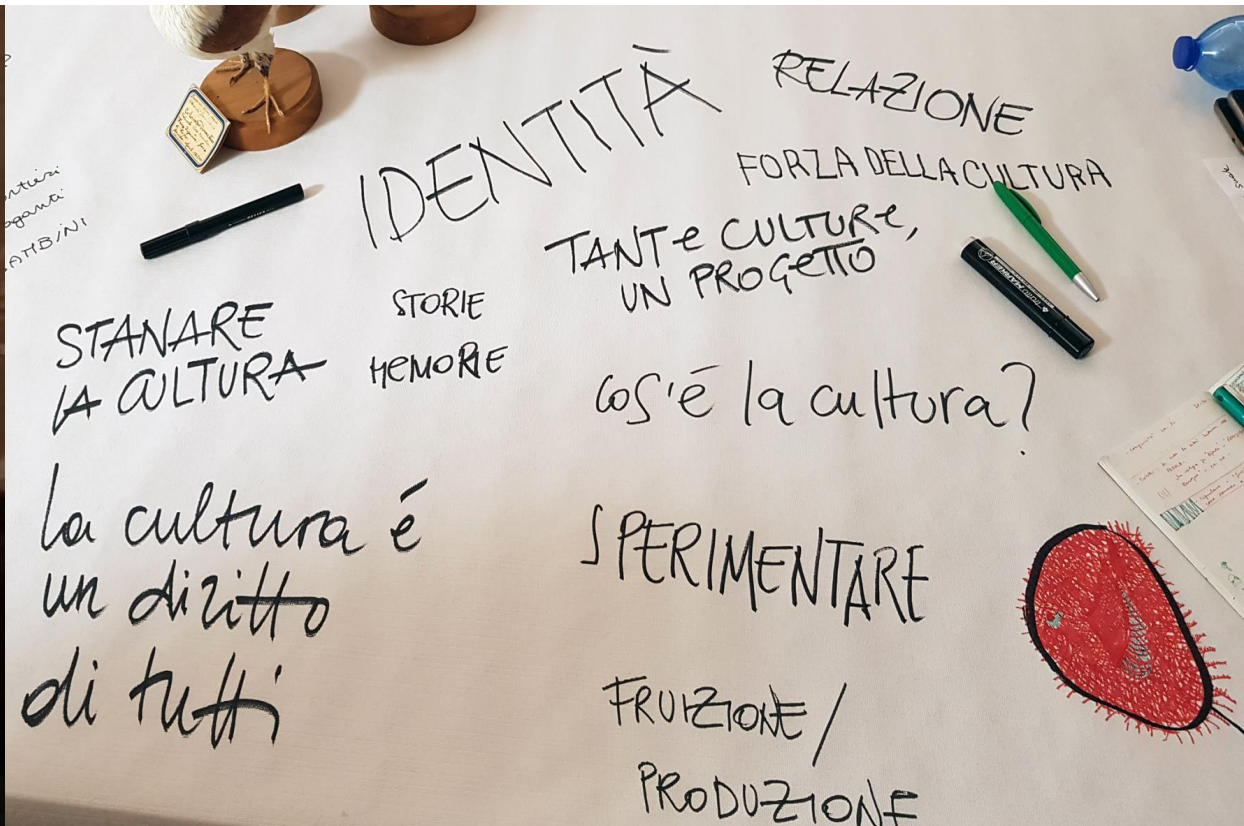 IDENTITÀ
RELAZIONE
FORZA DELLA CULTURA
TANTE CULTURE,
UN PROGETTO
BAMBINI
STANARE
LA CULTURA
STORIE
MEMORIE
cos'è la cultura?
la cultura é
un diritto
di tutti
SPERIMENTARE
FRUIZIONE /
PRODUZIONE